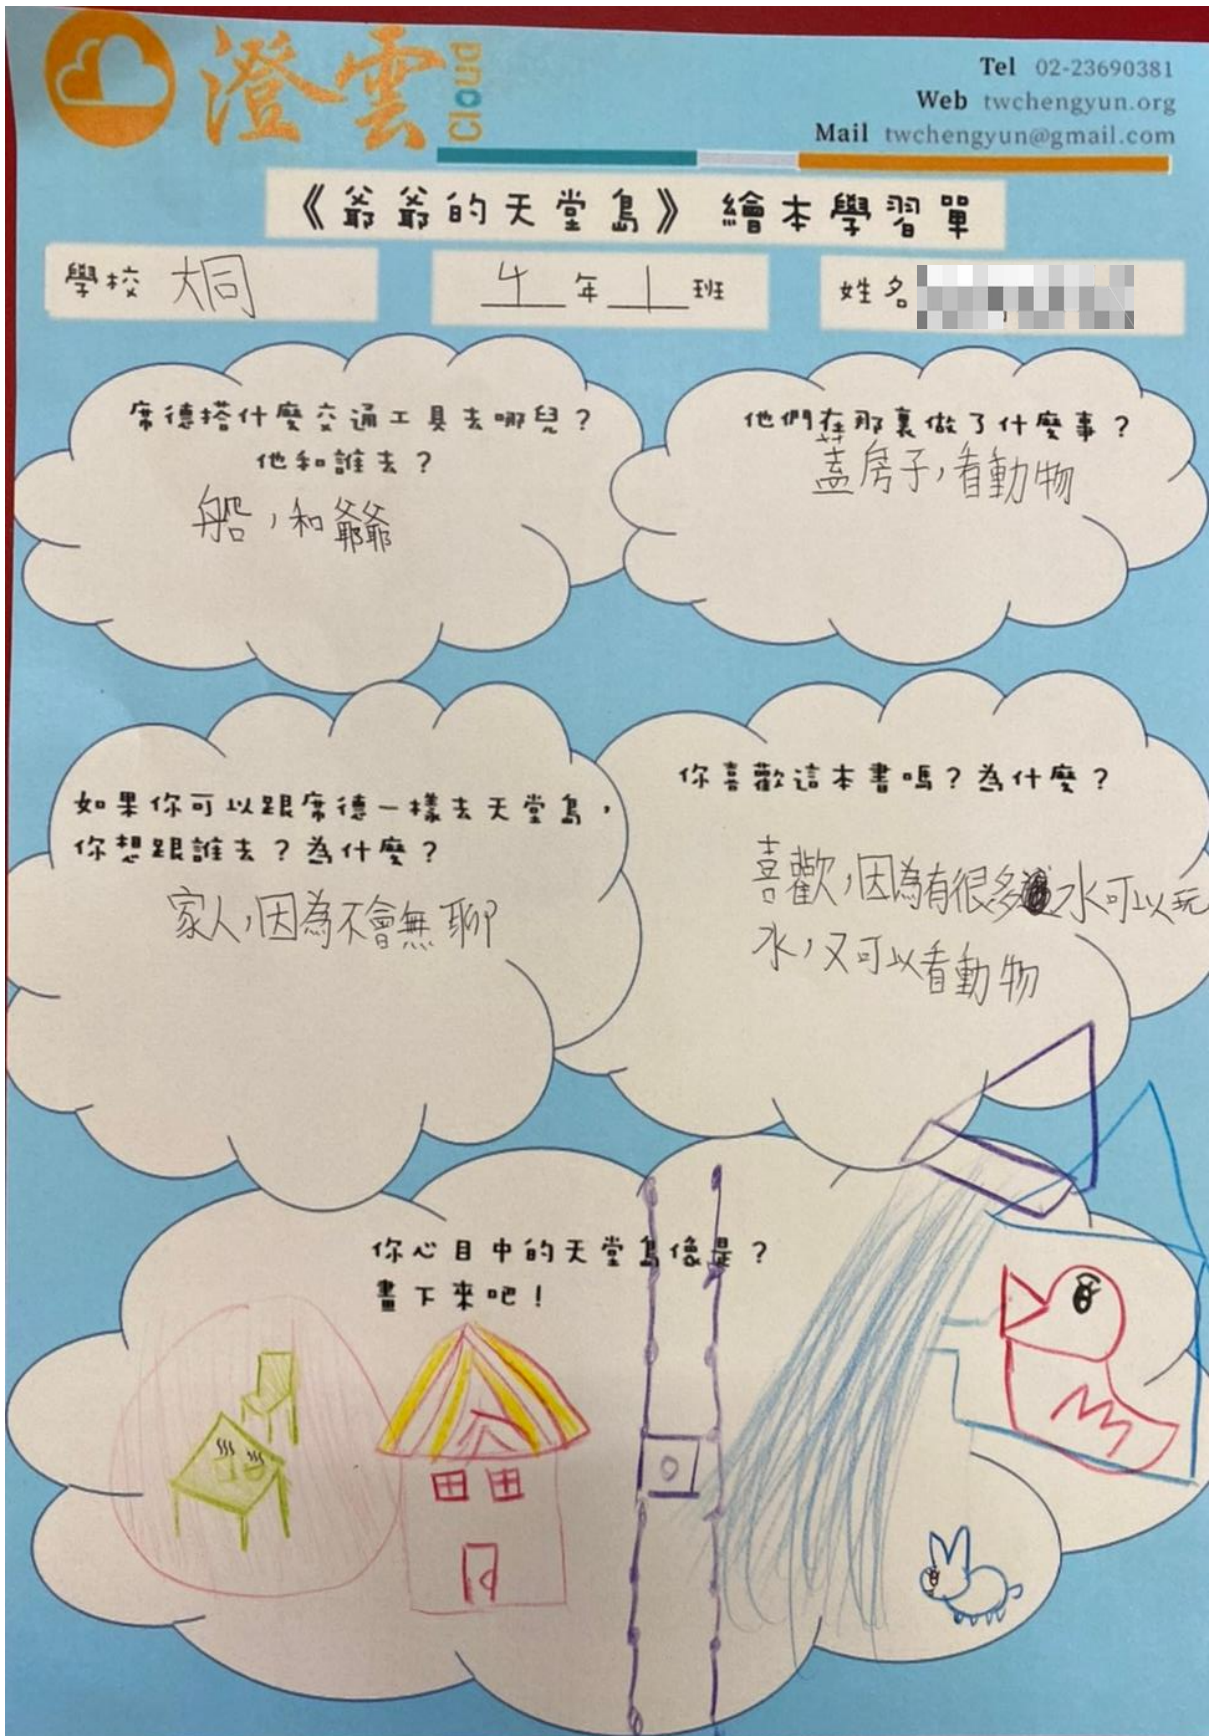 澄雲
Cloud
Tel 02-23690381
Web twchengyun.org
Mail twchengyun@gmail.com
《爺爺的天堂島》繪本學習單
學校 大同
4年1班
姓名
席德搭什麼交通工具去哪兒？
他和誰去？
船，和爺爺
他們在那裏做了什麼事？
蓋房子，看動物
如果你可以跟席德一樣去天堂島，
你想跟誰去？為什麼？
家人，因為不會無聊
你喜歡這本書嗎？為什麼？
喜歡，因為有很多水可以玩
水，又可以看動物
你心目中的天堂島像是？
畫下來吧！